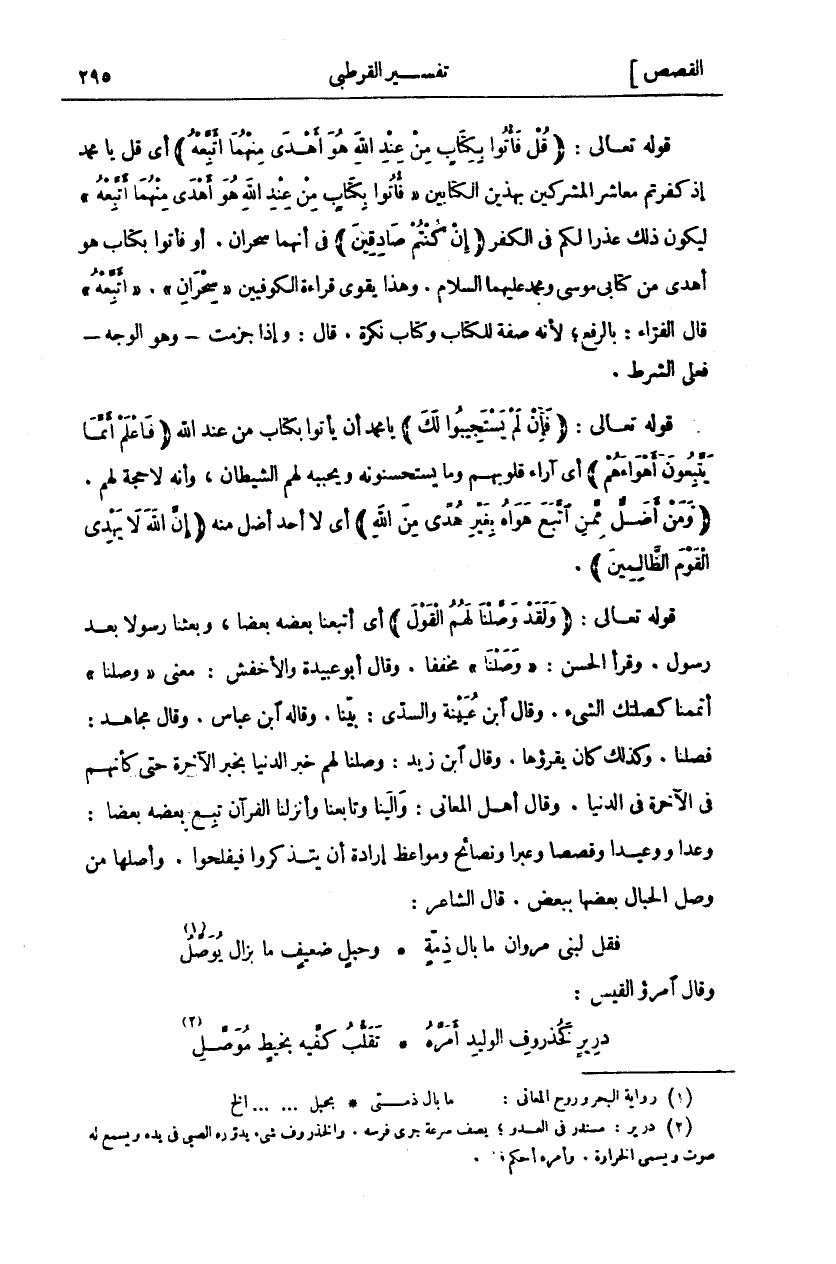 القصص ] تفسير القرطبى ٢٩٥
قوله تعالى : ﴿ قُلْ فَأْتُوا بِكِتَابٍ مِنْ عِنْدِ اللهِ هُوَ أَهْدَى مِنْهُمَا أَتَّبِعْهُ ﴾ أى قل يا محمد
إذ كفرتم معاشر المشركين بهذين الكتابين « فَأْتُوا بِكِتَابٍ مِنْ عِنْدِ اللهِ هُوَ أَهْدَى مِنْهُمَا أَتَّبِعْهُ »
ليكون ذلك عذرا لكم فى الكفر ﴿ إِنْ كُنْتُمْ صَادِقِينَ ﴾ فى أنهما سحران . أو فأتوا بكتاب هو
أهدى من كتابى موسى ومحمد عليهما السلام . وهذا يقوى قراءة الكوفيين « سِحْرَانِ » . « أَتَّبِعْهُ »
قال الفرّاء : بالرفع؛ لأنه صفة للكتاب وكتاب نكرة . قال : وإذا جزمت – وهو الوجه –
فعلى الشرط .
قوله تعالى : ﴿ فَإِنْ لَمْ يَسْتَجِيبُوا لَكَ ﴾ يا محمد أن يأتوا بكتاب من عند الله ﴿ فَاعْلَمْ أَنَّمَا
يَتَّبِعُونَ أَهْوَاءَهُمْ ﴾ أى آراء قلوبهم وما يستحسنونه ويحببه لهم الشيطان ، وأنه لا حجة لهم .
﴿ وَمَنْ أَضَلُّ مِمَّنِ ٱتَّبَعَ هَوَاهُ بِغَيْرِ هُدًى مِنَ اللهِ ﴾ أى لا أحد أضل منه ﴿ إِنَّ اللهَ لَا يَهْدِى
الْقَوْمَ الظَّالِمِينَ ﴾ .
قوله تعالى : ﴿ وَلَقَدْ وَصَّلْنَا لَهُمُ الْقَوْلَ ﴾ أى أتبعنا بعضه بعضا ، وبعثنا رسولا بعد
رسول . وقرأ الحسن : « وَصَلْنَا » مخففا . وقال أبو عبيدة والأخفش : معنى « وصلنا »
أتممنا كصلتك الشىء . وقال ٱبن عُيَيْنة والسدّى : بيّنا . وقاله ٱبن عباس . وقال مجاهد :
فصلنا . وكذلك كان يقرؤها . وقال ٱبن زيد : وصلنا لهم خبر الدنيا بخبر الآخرة حتى كأنهم
فى الآخرة فى الدنيا . وقال أهل المعانى : وَالَينا وتابعنا وأنزلنا القرآن تبِع بعضه بعضا :
وعدا ووعيدا وقصصا وعبرا ونصائح ومواعظ إرادة أن يتذكروا فيفلحوا . وأصلها من
وصل الحبال بعضها ببعض . قال الشاعر :
فقل لبنى مروان ما بال ذِمّةٍ * وحبلٍ ضعيفٍ ما يزال يُوَصَّلُ (١)
وقال ٱمرؤ القيس :
دريرٍ كخُذروفِ الوليدِ أَمَرَّهُ * تَقَلُّبُ كفَّيه بخيطٍ مُوَصَّلِ (٢)
(١) رواية البحر وروح المعانى : ما بال ذمتى * بحبل ... ... الخ
(٢) درير : مستدر فى العدو ؛ يصف سرعة جرى فرسه . والخذروف شىء يدوّره الصبى فى يده ويسمع له
صوت ويسمى الخرارة . وأمره أحكم .